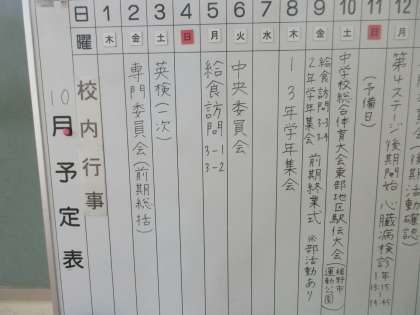 10月予定表
日 1 2 3 4 5 6 7 8 9 10 11
曜 木 金 土 日 月 火 水 木 金 土 日
校内行事
専門委員会(前期総括)
英検(一次)
給食訪問 3-1 3-2
中央委員会
1、3年学年集会
給食訪問 3-3 3-4
2年学年集会 前期終業式 ※部活動あり
中学校総合体育大会東部地区駅伝大会(裾野市運動公園)
(予備日)
第4ステージ・後期開始 心臓病検診